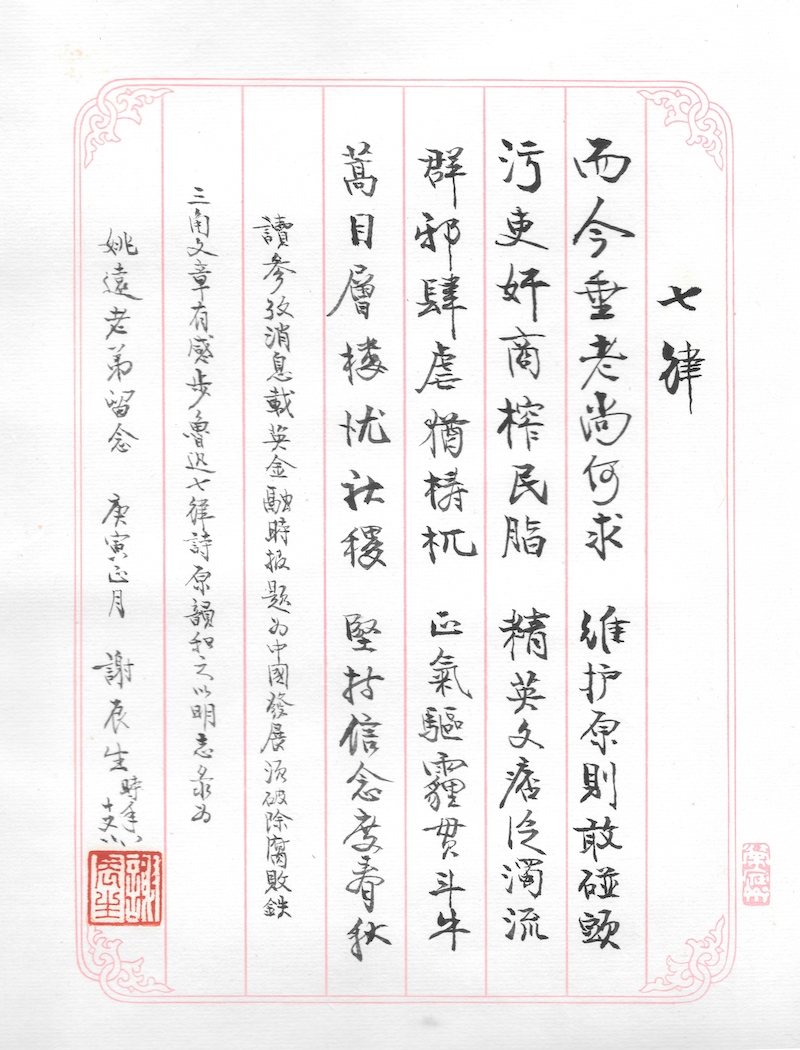 七律
而今垂老尚何求 维护原則敢碰頭
污吏奸商榨民脂 精英文痞泛濁流
群邪肆虐猶梼杌 正氣驅霾貫斗牛
蒿目層樓忧社稷 堅持信念度春秋
讀參攷消息載英金融時报題为中國發展须破除腐敗鉄
三角文章有感步魯迅七律詩原韻和之以明志录为
姚遠老弟留念 庚寅正月 謝辰生 時年
謝辰生